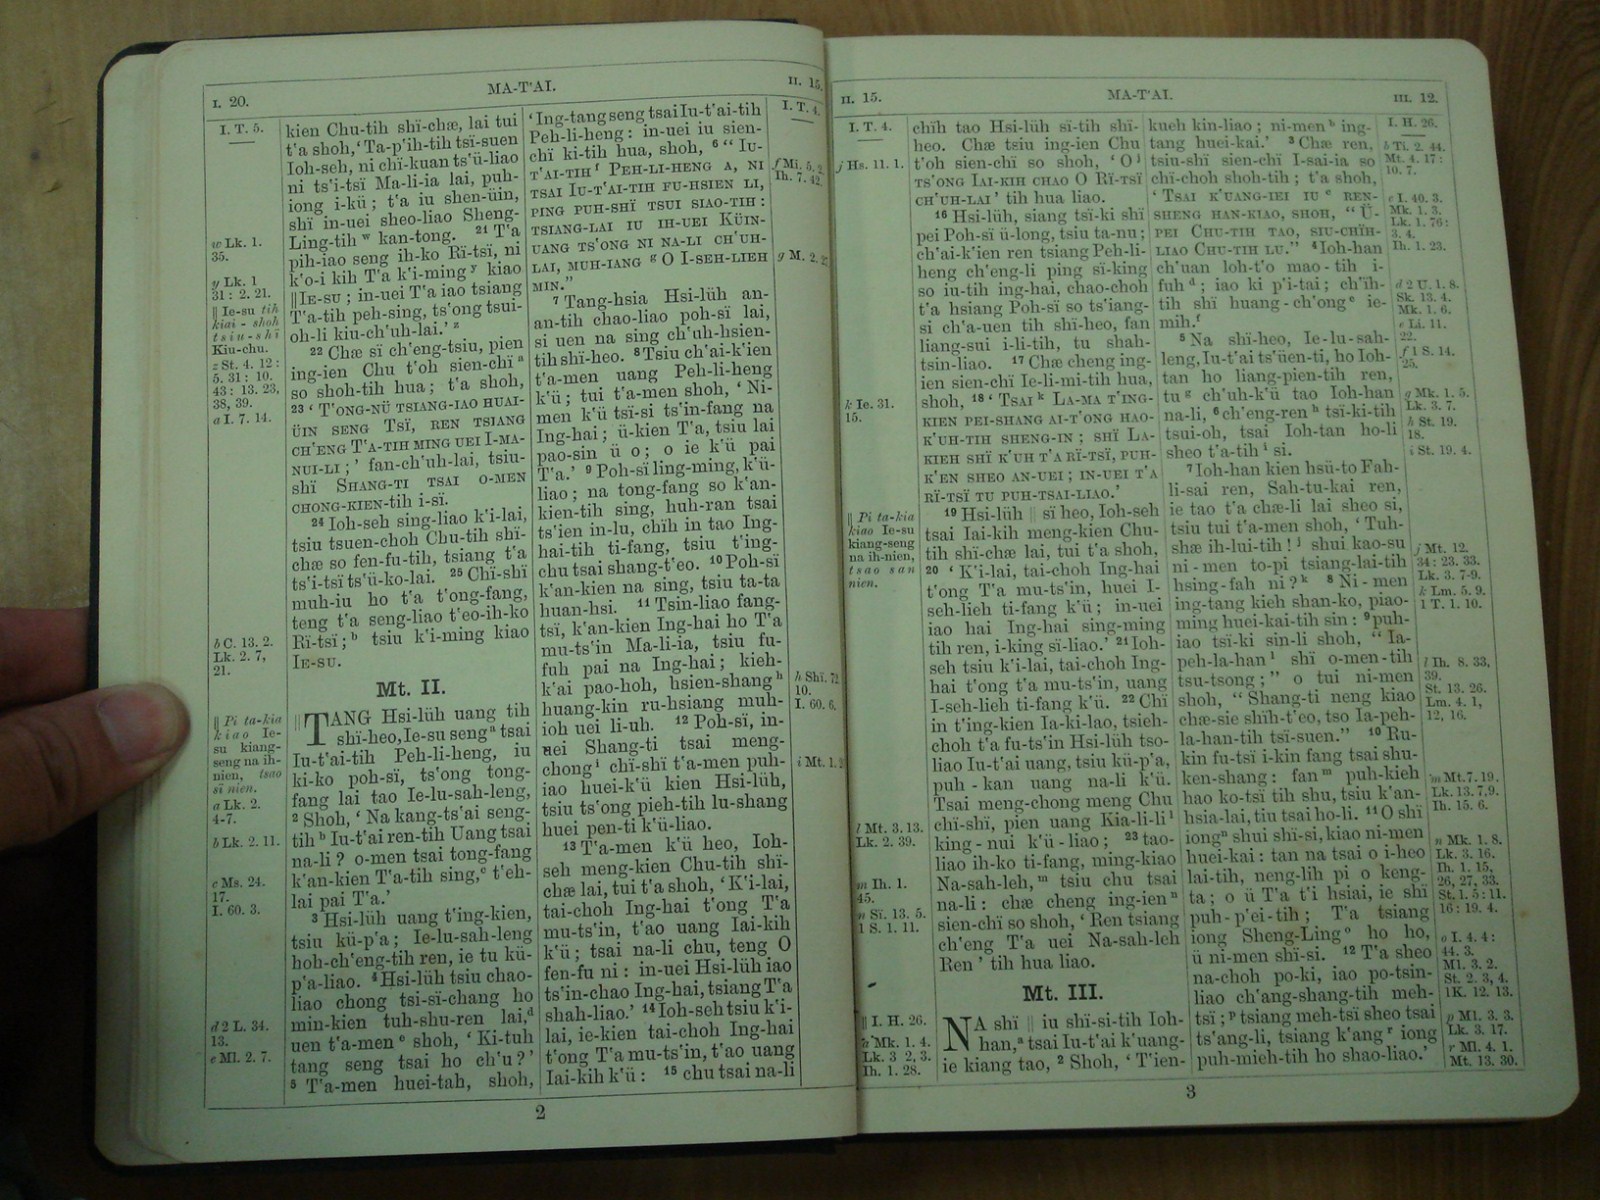 I. 20.
MA-T'AI.
II. 15.
I. T. 5.
w Lk. 1.
35.
y Lk. 1
31: 2. 21.
‖ Ie-su tih
kiai-shoh
tsiu-shï
Kiu-chu.
z St. 4. 12:
5. 31: 10.
43: 13. 23,
38, 39.
a I. 7. 14.
b C. 13. 2.
Lk. 2. 7,
21.
‖ Pi ta-kia
kiao Ie-
su kiang-
seng na ih-
nien, tsao
sï nien.
a Lk. 2.
4-7.
b Lk. 2. 11.
c Ms. 24.
17.
I. 60. 3.
d 2 L. 34.
13.
e Ml. 2. 7.
kien Chu-tih shï-chæ, lai tui
t'a shoh, 'Ta-p'ih-tih tsï-suen
Ioh-seh, ni chï-kuan ts'ü-liao
ni ts'i-tsï Ma-li-ia lai, puh-
iong i-kü; t'a iu shen-üin,
shï in-uei sheo-liao Sheng-
Ling-tih ʷ kan-tong. ²¹ T'a
pih-iao seng ih-ko Rï-tsï, ni
k'o-i kih T'a k'i-ming ʸ kiao
‖IE-SU; in-uei T'a iao tsiang
T'a-tih peh-sing, ts'ong tsui-
oh-li kiu-ch'uh-lai.' ᶻ
²² Chæ sï ch'eng-tsiu, pien
ing-ien Chu t'oh sien-chï ᵃ
so shoh-tih hua; t'a shoh,
²³ ' T'ONG-NÜ TSIANG-IAO HUAI-
ÜIN SENG TSÏ, REN TSIANG
CH'ENG T'A-TIH MING UEI I-MA-
NUI-LI;' fan-ch'uh-lai, tsiu-
shï SHANG-TI TSAI O-MEN
CHONG-KIEN-tih i-sï.
²⁴ Ioh-seh sing-liao k'i-lai,
tsiu tsuen-choh Chu-tih shï-
chæ so fen-fu-tih, tsiang t'a
ts'i-tsï ts'ü-ko-lai. ²⁵ Chï-shï
muh-iu ho t'a t'ong-fang,
teng t'a seng-liao t'eo-ih-ko
Rï-tsï; ᵇ tsiu k'i-ming kiao
IE-SU.
Mt. II.
‖TANG Hsi-lüh uang tih
shï-heo, Ie-su seng ᵃ tsai
Iu-t'ai-tih Peh-li-heng, iu
ki-ko poh-sï, ts'ong tong-
fang lai tao Ie-lu-sah-leng,
² Shoh, ' Na kang-ts'ai seng-
tih ᵇ Iu-t'ai ren-tih Uang tsai
na-li? o-men tsai tong-fang
k'an-kien T'a-tih sing, ᶜ t'eh-
lai pai T'a.'
³ Hsi-lüh uang t'ing-kien,
tsiu kü-p'a; Ie-lu-sah-leng
hoh-ch'eng-tih ren, ie tu kü-
p'a-liao. ⁴ Hsi-lüh tsiu chao-
liao chong tsi-sï-chang ho
min-kien tuh-shu-ren lai, ᵈ
uen t'a-men ᵉ shoh, ' Ki-tuh
tang seng tsai ho ch'u?'
⁵ T'a-men huei-tah, shoh,
'Ing-tang seng tsai Iu-t'ai-tih
Peh-li-heng: in-uei iu sien-
chï ki-tih hua, shoh, ⁶ " IU-
T'AI-TIH ᶠ PEH-LI-HENG A, NI
TSAI IU-T'AI-TIH FU-HSIEN LI,
PING PUH-SHÏ TSUI SIAO-TIH:
TSIANG-LAI IU IH-UEI KÜIN-
UANG TS'ONG NI NA-LI CH'UH-
LAI, MUH-IANG ᵍ O I-SEH-LIEH
MIN."
⁷ Tang-hsia Hsi-lüh an-
an-tih chao-liao poh-sï lai,
si uen na sing ch'uh-hsien-
tih shï-heo. ⁸ Tsiu ch'ai-k'ien
t'a-men uang Peh-li-heng
k'ü; tui t'a-men shoh, ' Ni-
men k'ü tsï-si ts'in-fang na
Ing-hai; ü-kien T'a, tsiu lai
pao-sin ü o; o ie k'ü pai
T'a.' ⁹ Poh-sï ling-ming, k'ü-
liao; na tong-fang so k'an-
kien-tih sing, huh-ran tsai
ts'ien in-lu, chïh in tao Ing-
hai-tih ti-fang, tsiu t'ing-
chu tsai shang-t'eo. ¹⁰ Poh-sï
k'an-kien na sing, tsiu ta-ta
huan-hsi. ¹¹ Tsin-liao fang-
tsï, k'an-kien Ing-hai ho T'a
mu-ts'in Ma-li-ia, tsiu fu-
fuh pai na Ing-hai; kieh-
k'ai pao-hoh, hsien-shang ʰ
huang-kin ru-hsiang muh-
ioh uei li-uh. ¹² Poh-sï, in-
uei Shang-ti tsai meng-
chong ⁱ chï-shï t'a-men puh-
iao huei-k'ü kien Hsi-lüh,
tsiu ts'ong pieh-tih lu-shang
huei pen-ti k'ü-liao.
¹³ T'a-men k'ü heo, Ioh-
seh meng-kien Chu-tih shï-
chæ lai, tui t'a shoh, ' K'i-lai,
tai-choh Ing-hai t'ong T'a
mu-ts'in, t'ao uang Iai-kih
k'ü; tsai na-li chu, teng O
fen-fu ni: in-uei Hsi-lüh iao
ts'in-chao Ing-hai, tsiang T'a
shah-liao.' ¹⁴ Ioh-seh tsiu k'i-
lai, ie-kien tai-choh Ing-hai
t'ong T'a mu-ts'in, t'ao uang
Iai-kih k'ü: ¹⁵ chu tsai na-li
I. T. 4.
f Mi. 5. 2.
Ih. 7. 42.
g M. 2.
h Shï. 72
10.
I. 60. 6.
i Mt. 1. 2
2
II. 15.
MA-T'AI.
III. 12.
I. T. 4.
j Hs. 11. 1.
k Ie. 31.
15.
‖ Pi ta-kia
kiao Ie-su
kiang-seng
na ih-nien,
tsao san
nien.
l Mt. 3. 13.
Lk. 2. 39.
m Ih. 1.
45.
n Sï. 13. 5.
1 S. 1. 11.
‖ I. H. 26.
a Mk. 1. 4.
Lk. 3 2, 3.
Ih. 1. 28.
chïh tao Hsi-lüh sï-tih shï-
heo. Chæ tsiu ing-ien Chu
t'oh sien-chï so shoh, ' O ʲ
TS'ONG IAI-KIH CHAO O RÏ-TSÏ
CH'UH-LAI' tih hua liao.
¹⁶ Hsi-lüh, siang tsï-ki shï
pei Poh-sï ü-long, tsiu ta-nu;
ch'ai-k'ien ren tsiang Peh-li-
heng ch'eng-li ping sï-king
so iu-tih ing-hai, chao-choh
t'a hsiang Poh-sï so ts'iang-
si ch'a-uen tih shï-heo, fan
liang-sui i-li-tih, tu shah-
tsin-liao. ¹⁷ Chæ cheng ing-
ien sien-chï Ie-li-mi-tih hua,
shoh, ¹⁸ ' TSAI ᵏ LA-MA T'ING-
KIEN PEI-SHANG AI-T'ONG HAO-
K'UH-TIH SHENG-IN; SHÏ LA-
KIEH SHÏ K'UH T'A RÏ-TSÏ, PUH-
K'EN SHEO AN-UEI; IN-UEI T'A
RÏ-TSÏ TU PUH-TSAI-LIAO.'
¹⁹ Hsi-lüh ‖ sï heo, Ioh-seh
tsai Iai-kih meng-kien Chu-
tih shï-chæ lai, tui t'a shoh,
²⁰ ' K'i-lai, tai-choh Ing-hai
t'ong T'a mu-ts'in, huei I-
seh-lieh ti-fang k'ü; in-uei
iao hai Ing-hai sing-ming
tih ren, i-king sï-liao.' ²¹ Ioh-
seh tsiu k'i-lai, tai-choh Ing-
hai t'ong t'a mu-ts'in, uang
I-seh-lieh ti-fang k'ü. ²² Chï
in t'ing-kien Ia-ki-lao, tsieh-
choh t'a fu-ts'in Hsi-lüh tso-
liao Iu-t'ai uang, tsiu kü-p'a,
puh-kan uang na-li k'ü.
Tsai meng-chong meng Chu
chï-shï, pien uang Kia-li-li ˡ
king-nui k'ü-liao; ²³ tao-
liao ih-ko ti-fang, ming-kiao
Na-sah-leh, ᵐ tsiu chu tsai
na-li: chæ cheng ing-ien ⁿ
sien-chï so shoh, ' Ren tsiang
ch'eng T'a uei Na-sah-leh
Ren ' tih hua liao.
Mt. III.
NA shï ‖ iu shï-si-tih Ioh-
han, ᵃ tsai Iu-t'ai k'uang-
ie kiang tao, ² Shoh, ' T'ien-
kueh kin-liao; ni-men ᵇ ing-
tang huei-kai.' ³ Chæ ren,
tsiu-shï sien-chï I-sai-ia so
chï-choh shoh-tih; t'a shoh,
' TSAI K'UANG-IEI IU ᶜ REN-
SHENG HAN-KIAO, SHOH, " Ü-
PEI CHU-TIH TAO, SIU-CHÏH-
LIAO CHU-TIH LU." ⁴ Ioh-han
ch'uan loh-t'o mao-tih i-
fuh ᵈ; iao ki p'i-tai; ch'ïh-
tih shï huang-ch'ong ᵉ ie-
mih. ᶠ
⁵ Na shï-heo, Ie-lu-sah-
leng, Iu-t'ai ts'üen-ti, ho Ioh-
tan ho liang-pien-tih ren,
tu ᵍ ch'uh-k'ü tao Ioh-han
na-li, ⁶ ch'eng-ren ʰ tsï-ki-tih
tsui-oh, tsai Ioh-tan ho-li
sheo t'a-tih ⁱ si.
⁷ Ioh-han kien hsü-to Fah-
li-sai ren, Sah-tu-kai ren,
ie tao t'a chæ-li lai sheo si,
tsiu tui t'a-men shoh, ' Tuh-
shæ ih-lui-tih! ʲ shui kao-su
ni-men to-pi tsiang-lai-tih
hsing-fah ni? ᵏ ⁸ Ni-men
ing-tang kieh shan-ko, piao-
ming huei-kai-tih sin: ⁹ puh-
iao tsï-ki sin-li shoh, " Ia-
peh-la-han ˡ shï o-men-tih
tsu-tsong;" o tui ni-men
shoh, " Shang-ti neng kiao
chæ-sie shïh-t'eo, tso Ia-peh-
la-han-tih tsï-suen." ¹⁰ Ru-
kin fu-tsï i-kin fang tsai shu-
ken-shang: fan ᵐ puh-kieh
hao ko-tsï tih shu, tsiu k'an-
hsia-lai, tiu tsai ho-li. ¹¹ O shï
iong ⁿ shui shï-si, kiao ni-men
huei-kai: tan na tsai o i-heo
lai-tih, neng-lih pi o keng-
ta; o ü T'a t'i hsiai, ie shï
puh-p'ei-tih; T'a tsiang
iong Sheng-Ling ᵒ ho ho,
ü ni-men shï-si. ¹² T'a sheo
na-choh po-ki, iao po-tsin-
liao ch'ang-shang-tih meh-
tsï; ᵖ tsiang meh-tsï sheo tsai
ts'ang-li, tsiang k'ang ʳ iong
puh-mieh-tih ho shao-liao.'
I. H. 26.
b Ti. 2. 44.
Mt. 4. 17:
10. 7.
c I. 40. 3.
Mk. 1. 3.
Lk. 1. 76:
3. 4.
Ih. 1. 23.
d 2 U. 1. 8.
Sk. 13. 4.
Mk. 1. 6.
e Li. 11.
22.
f 1 S. 14.
25.
g Mk. 1. 5.
Lk. 3. 7.
h St. 19.
18.
i St. 19. 4.
j Mt. 12.
34: 23. 33.
Lk. 3. 7-9.
k Lm. 5. 9.
1 T. 1. 10.
l Ih. 8. 33,
39.
St. 13. 26.
Lm. 4. 1,
12, 16.
m Mt. 7. 19.
Lk. 13. 7,9.
Ih. 15. 6.
n Mk. 1. 8.
Lk. 3. 16.
Ih. 1. 15,
26, 27, 33.
St. 1. 5: 11.
16: 19. 4.
o I. 4. 4:
44. 3.
Ml. 3. 2.
St. 2. 3, 4.
1K. 12. 13.
p Ml. 3. 3.
Lk. 3. 17.
r Ml. 4. 1.
Mt. 13. 30.
3